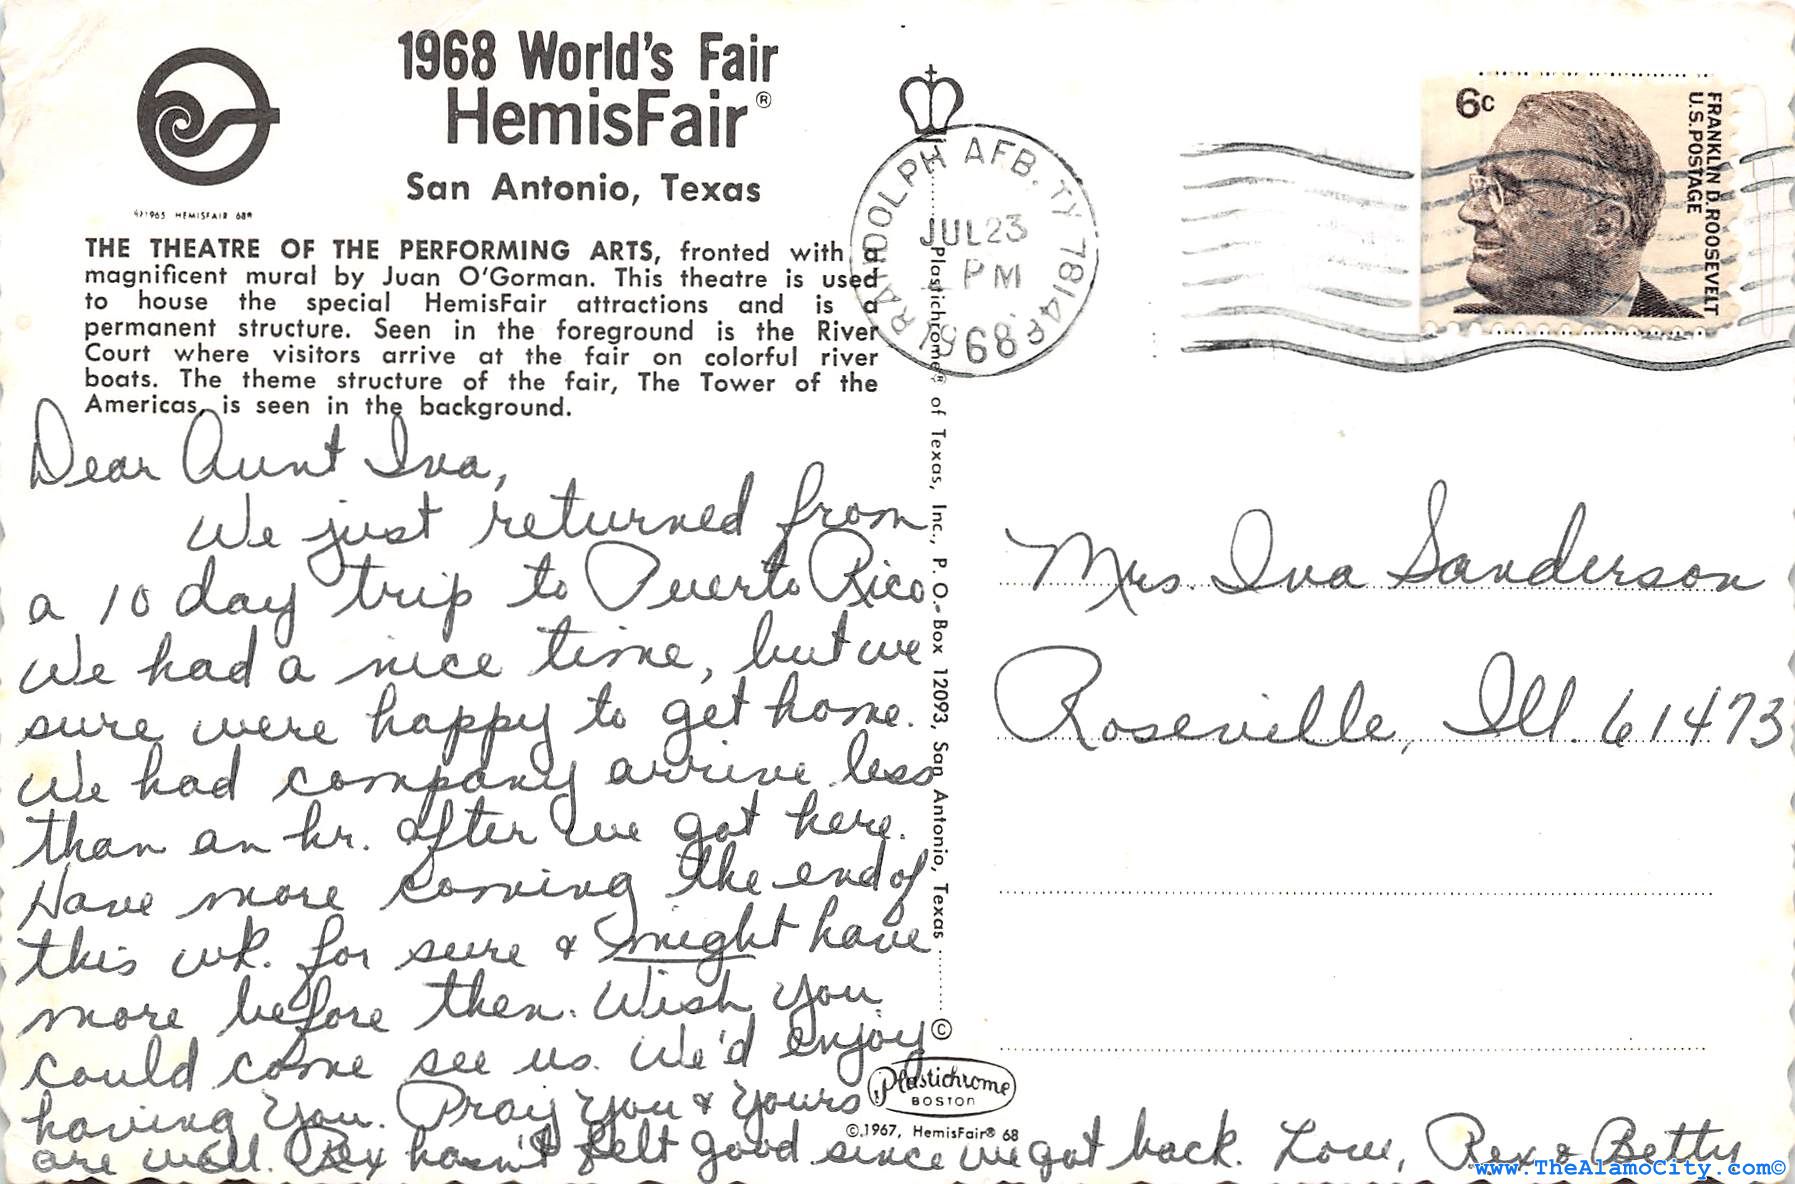 1968 World's Fair
HemisFair®
San Antonio, Texas
©1965 HEMISFAIR 68®
THE THEATRE OF THE PERFORMING ARTS, fronted with a
magnificent mural by Juan O'Gorman. This theatre is used
to house the special HemisFair attractions and is a
permanent structure. Seen in the foreground is the River
Court where visitors arrive at the fair on colorful river
boats. The theme structure of the fair, The Tower of the
Americas, is seen in the background.
Dear Aunt Iva,
We just returned from
a 10 day trip to Puerto Rico
We had a nice time, but we
sure were happy to get home.
We had company arrive less
than an hr. after we got here.
Have more coming the end of
this wk. for sure & might have
more before then. Wish you
could come see us. We'd enjoy
having you. Pray you & yours
are well. Rex hasn't felt good since we got back. Love, Rex & Betty
Plastichrome® of Texas, Inc., P. O. Box 12093, San Antonio, Texas
©
Plastichrome
BOSTON
©.1967, HemisFair® 68
RANDOLPH AFB. TX 78148
JUL 23
PM
1968
6c
FRANKLIN D. ROOSEVELT
U.S. POSTAGE
Mrs. Iva Sanderson
Roseville, Ill. 61473
www.TheAlamoCity.com©